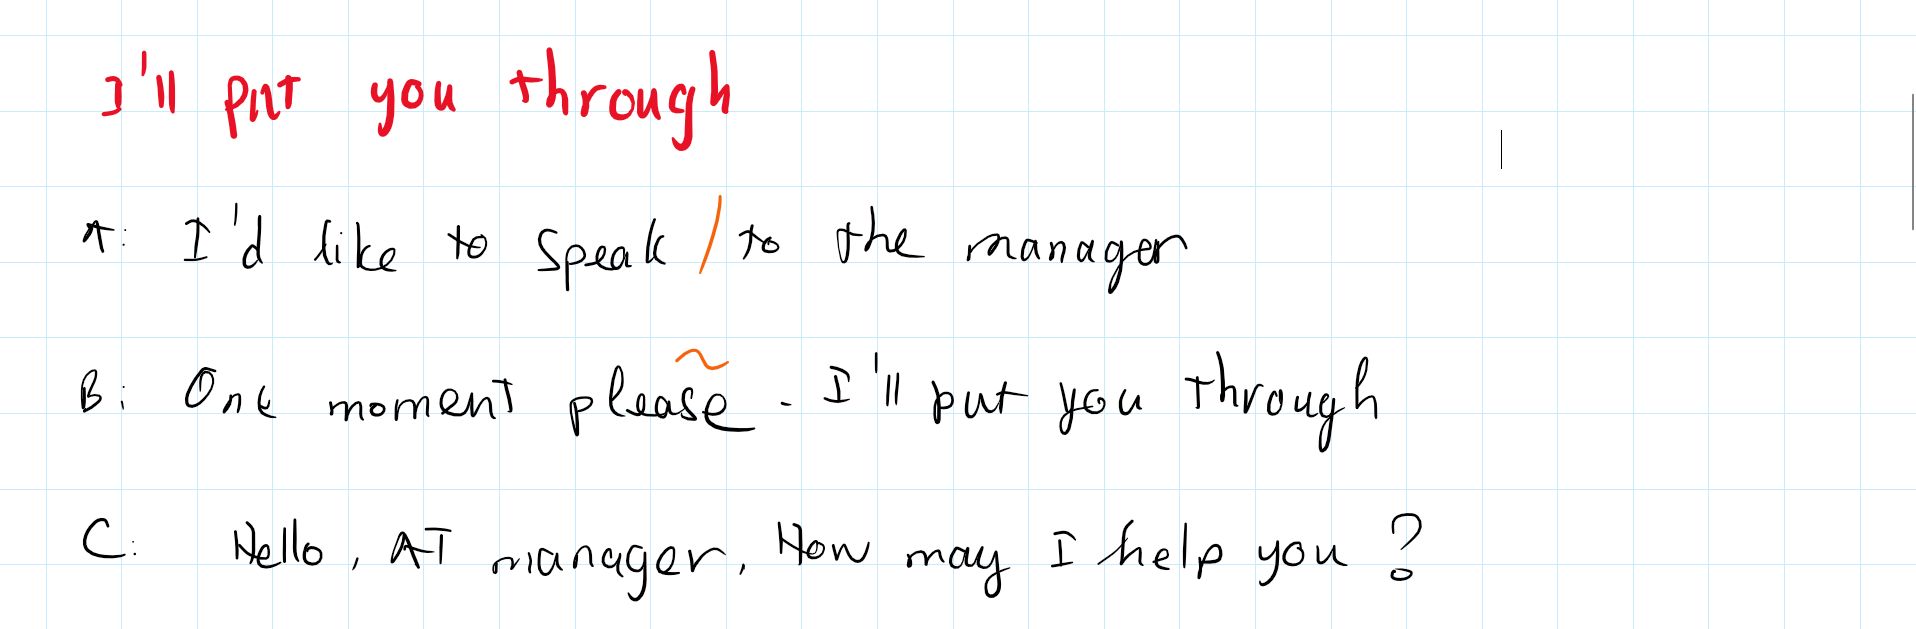 I'll put you through
A: I'd like to speak / to the manager
B: One moment please. I'll put you through
C: Hello, AT manager, How may I help you?